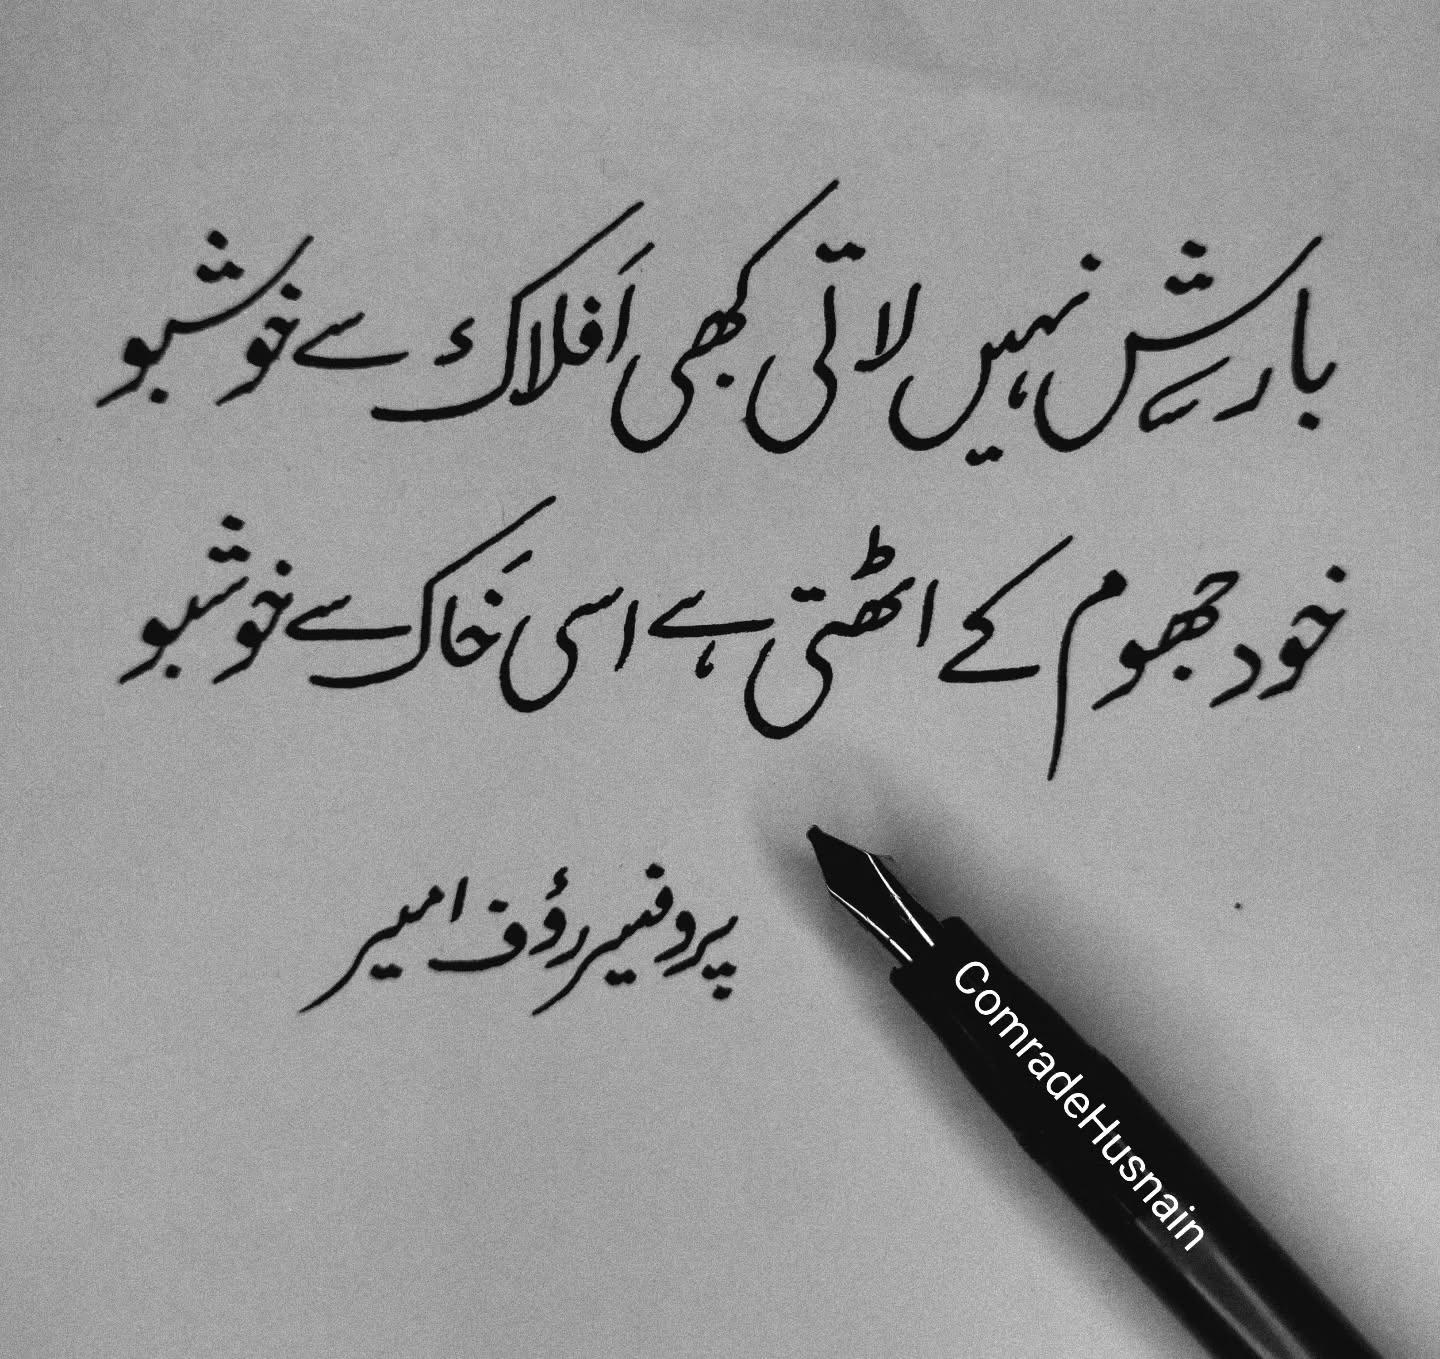 بارش نہیں لاتی کبھی اَفلاک سے خوشبو
خود جھوم کے اٹھتی ہے اسی خَاک سے خوشبو
پروفیسر رؤف امیر
ComradeHusnain